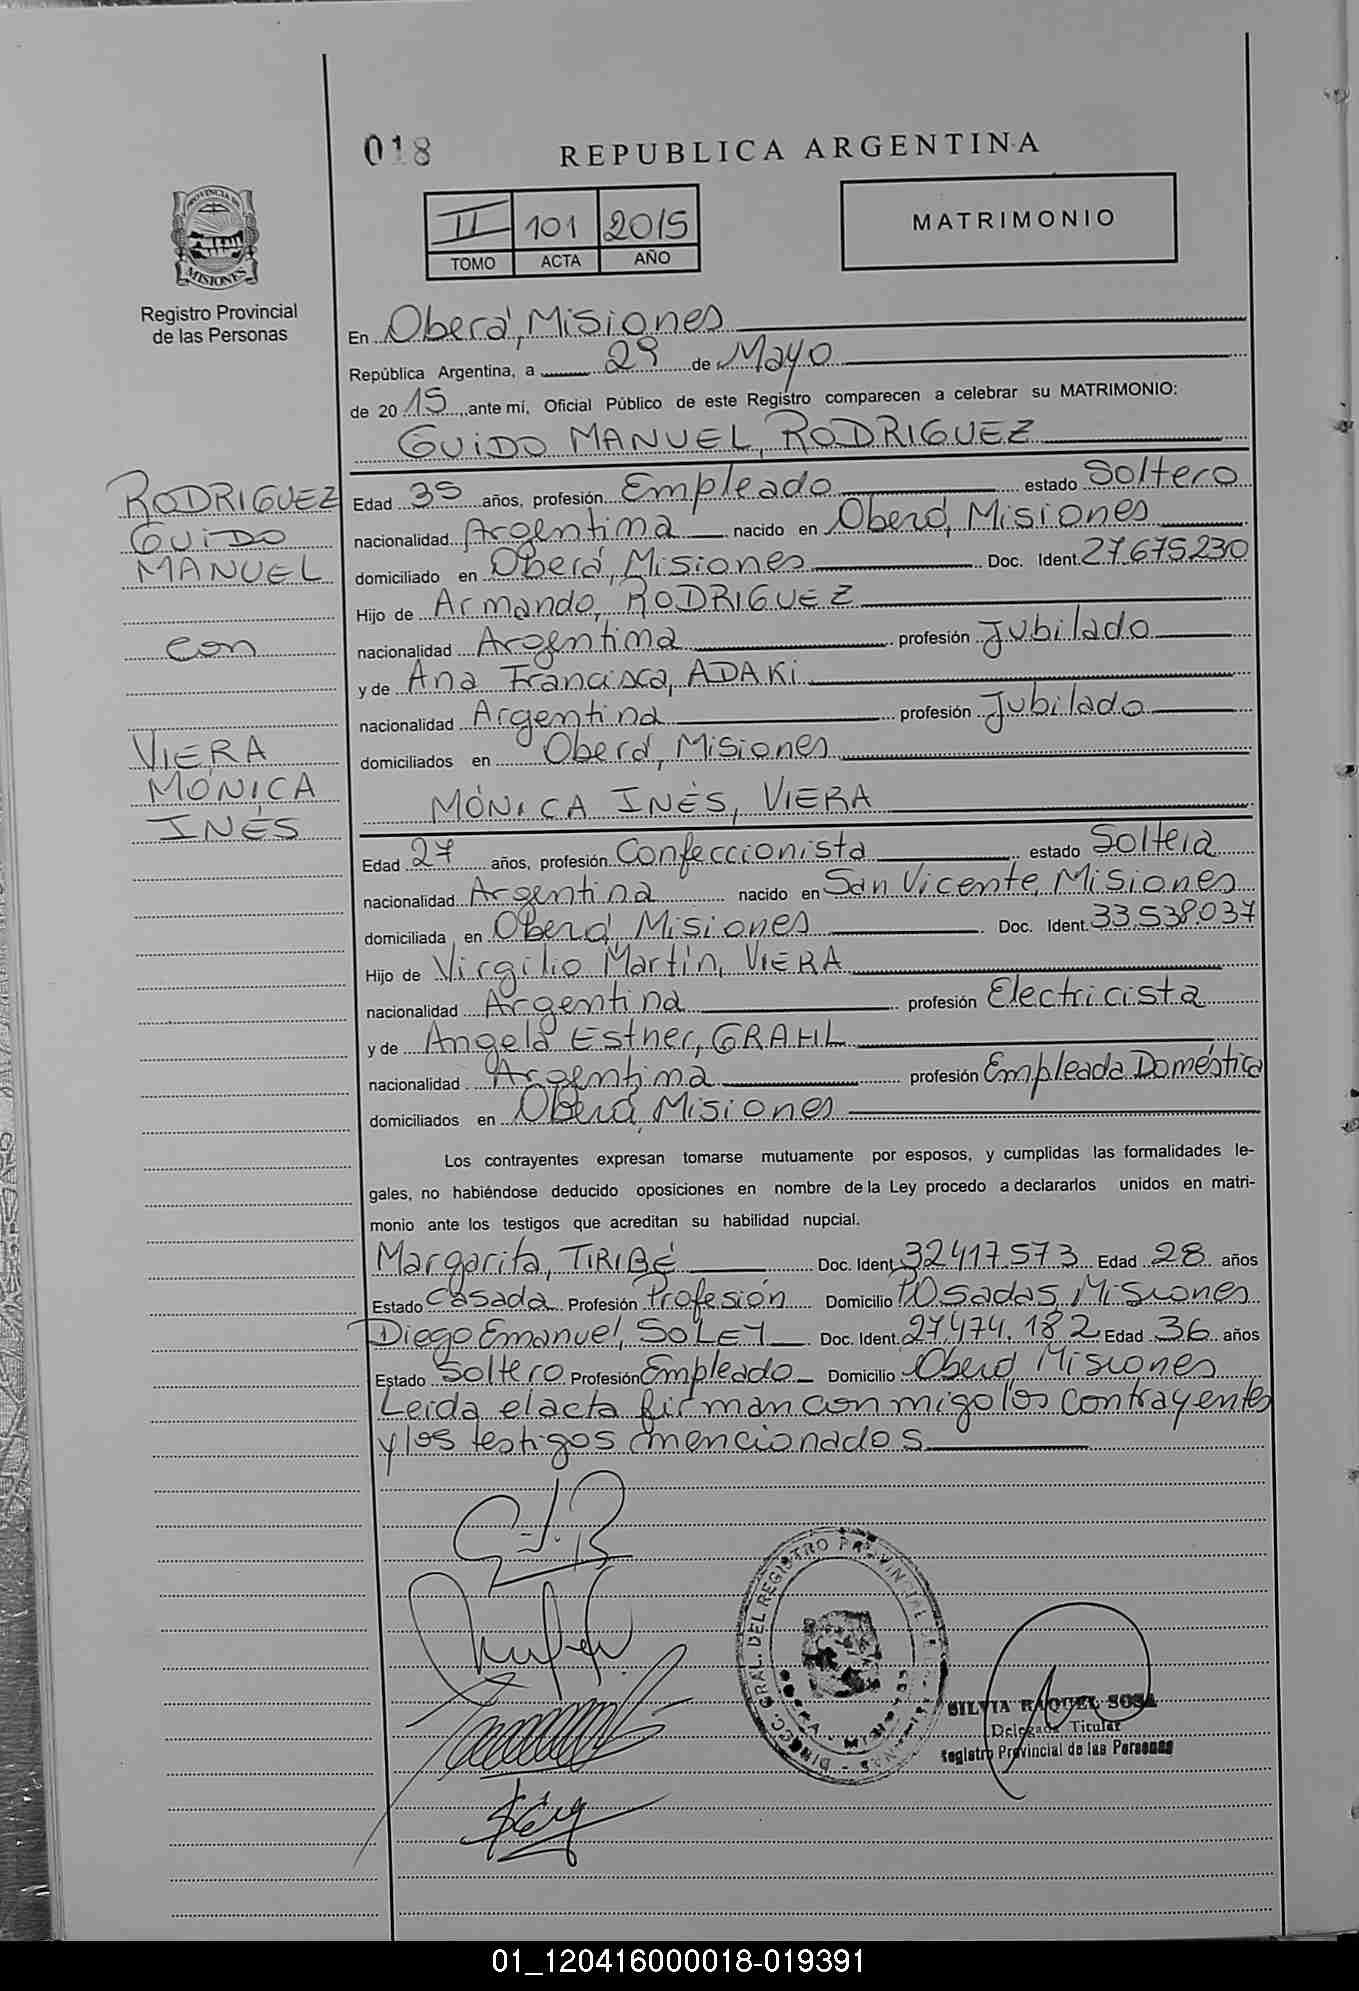 018
REPUBLICA ARGENTINA
PROVINCIA DE
MISIONES
Registro Provincial
de las Personas
II 101 2015
TOMO ACTA AÑO
MATRIMONIO
En Oberá, Misiones
República Argentina, a 29 de Mayo
de 2015, ante mí, Oficial Público de este Registro comparecen a celebrar su MATRIMONIO:
GUIDO MANUEL, RODRIGUEZ
RODRIGUEZ
GUIDO
MANUEL
con
VIERA
MÓNICA
INÉS
Edad 35 años, profesión Empleado estado Soltero
nacionalidad Argentina nacido en Oberá, Misiones
domiciliado en Oberá, Misiones Doc. Ident. 27.675.230
Hijo de Armando, RODRIGUEZ
nacionalidad Argentina profesión Jubilado
y de Ana Francisca, ADAKI
nacionalidad Argentina profesión Jubilado
domiciliados en Oberá, Misiones
MÓNICA INÉS, VIERA
Edad 27 años, profesión Confeccionista estado Soltera
nacionalidad Argentina nacido en San Vicente, Misiones
domiciliada en Oberá, Misiones Doc. Ident. 33.538.037
Hijo de Virgilio Martín, VIERA
nacionalidad Argentina profesión Electricista
y de Angela Esther, GRAHL
nacionalidad Argentina profesión Empleada Doméstica
domiciliados en Oberá, Misiones
Los contrayentes expresan tomarse mutuamente por esposos, y cumplidas las formalidades le-
gales, no habiéndose deducido oposiciones en nombre de la Ley procedo a declararlos unidos en matri-
monio ante los testigos que acreditan su habilidad nupcial.
Margarita, TIRIBÉ Doc. Ident. 32.417.573 Edad 28 años
Estado Casada Profesión Profesión Domicilio Posadas, Misiones
Diego Emanuel, SOLEY Doc. Ident. 27.474.182 Edad 36 años
Estado Soltero Profesión Empleado Domicilio Oberá Misiones
Leida el acta firman con migo los contrayentes
y los testigos mencionados
DIREC. GRAL. DEL REGISTRO PROVINCIAL DE LAS
SILVIA RAQUEL SOSA
Delegada Titular
Registro Provincial de las Personas
01_120416000018-019391